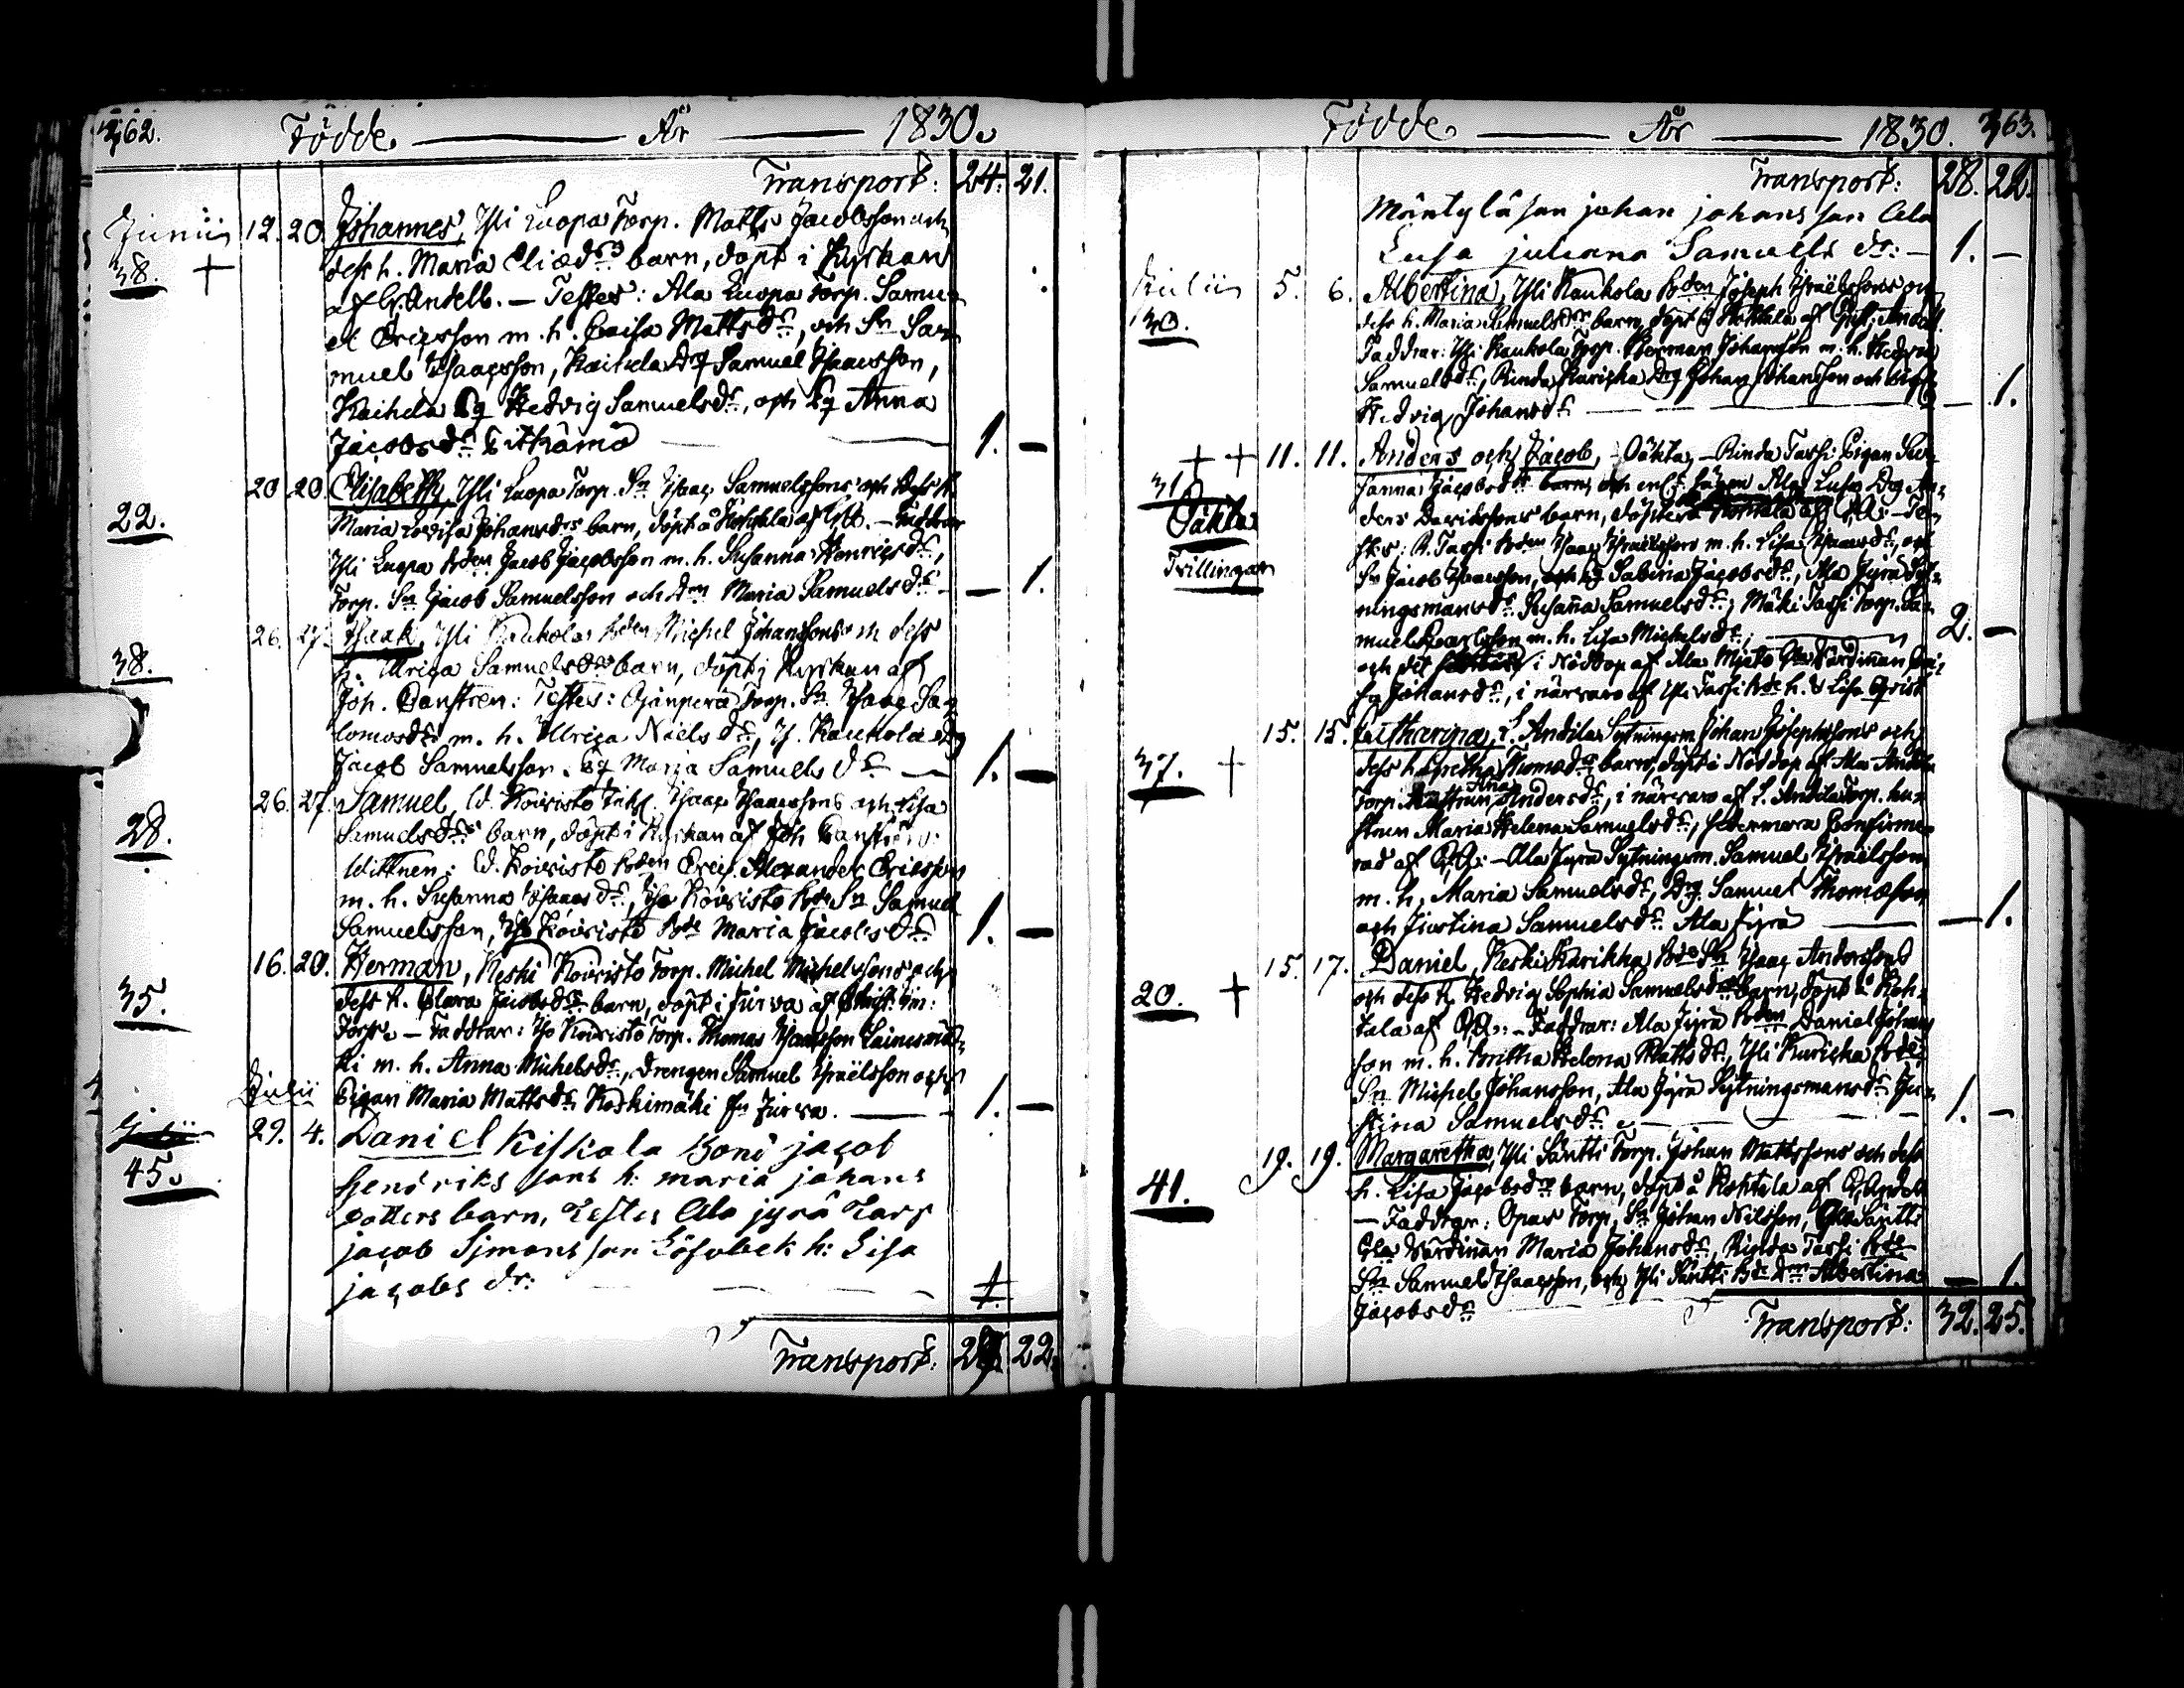 262. Födde År 1830.
Transport: 24. 21.
Junii 12. 20. Johannes, Yli Luopa Torp. Matts Jacobsson och
38. + dess h. Maria Eliædrs barn, döpt i Kyrkan
af G. Andell. – Testes: Ala Luopa Torp. Samu-
el Ericsson m. h. Caisa Matts dr, och Sn Sa-
muel Isaacsson, Kaihla Drg Samuel Isaacsson,
Kaihla Pg Hedvig Samuelsdr, och Pg Anna
Jacobsdr 1. –
20 20. Elisabeth, Yli Luopa Torp. Sn Isaac Samuelssons och dess h.
22. Maria Lovisa Johansdrs barn, döpt å Kohtala af – Faddrar
Yli Luopa Bden Jacob Jacobsson m. h. Susanna Henricsdr,
Torp. Sn Jacob Samuelsson och Dm Maria Samuelsdr – 1.
26. 27. Isaak, Yli Kaukola Bden Michel Johanssons m dess
38. h. Ulrica Samuelsdrs barn, döpt i Kyrkan af
Joh. Danström: Testes: Torp. Sn Isaac Sa-
lomosdr m. h. Ulrica Nielsdr, Y. Kaukola Drg
Jacob Samuelsson, Pg Maria Samuels dr 1. –
26. 27. Samuel, W. Koivisto Inh. Isaac Isaacssons och Lisa
28. Samuelsdrs barn, döpt i Kyrkan af Joh Danström:
Wittnen: W. Koivisto Bden Eric Alexander Ericsson
m. h. Susanna Isaacsdr, Iso Koivisto Bde Sn Samuel
Samuelsson, Iso Koivisto Bde Maria Jacobsdr 1. –
16. 20. Herman, Keski Koivisto Torp. Michel Michelssons och
35. dess h. Clara Jacobsdrs barn, döpt i Jurva af
– Faddrar: Iso Koivisto Torp. Thomas Isaacsson
m. h. Anna Michelsdr, Drengen Samuel Israelsson och
Julii Pigan Maria Mattsdr Koskimäki fr Jurva. 1. –
29. 4. Daniel Kiskola Bond jacob
45. Hendriks sons h: maria johans
dotters barn, Testes Ala jyrä Tarp
jacob Simons son Löfvbek h: Lisa
jacobs dr: 1.
Transport: 22.
Födde År 1830. 263.
Transport: 28. 22.
Mäntylä son johan johans son Ala
Luopa juliana Samuels dr: 1. –
Julii 5. 6. Albertina, Yli Kaukola Bden Joseph Israëlssons och
30. dess h. Maria Samuelsdrs barn, döpt å Kohtala af Gust: Andell.
Faddrar: Yli Kaukola Torp. Herman Johansson m. h. Hedvig
Samuelsdr, Rinda Karicka Drg Johan Johansson och
Hedvig Johansdr – 1.
+ + 11. 11. Anders och Jacob, – Oäkta, – Rinda Tassi Pigan Su-
31. sanna Jacobsdrs barn, Ala Luopa Drg An-
Oäkta ders Davidssons barn, döpte å Kohtala af G. A: – Te-
stes: R. Tassi Bden Isaac Israelsson m. h. Lisa Isaacsdr, och
Tvillingar Sn Jacob Isaacsson, och Pg Sabina Jacobsdr, Ala Jyrä Syt-
ningsmansdr Susanna Samuelsdr, Mäki Tassi Torp. Sa-
muel m. h. Lisa Michelsdr, 2. –
och det i Nöddop af Ala Mieto
Johansdr, i närvaro af Yli Tassi Bde h. Lisa
15. 15. Catharina, L. Andila Sytningsm Johan Josephssons och
37. + dess h. Thomædrs barn, döpt i Nöddop af Ala Andila
Torp. Hustrun Anna Andersdr, i närvaro af L. Andila Torp. hu-
strun Maria Helena Samuelsdr, sedermera Confirme-
rad af G. A: – Ala Jyrä Sytningsm. Samuel Israëlsson
m. h. Maria Samuelsdr, Drg. Samuel Thomæson
och Justina Samuelsdr Ala Jyrä – 1.
15. 17. Daniel, Keski Karikka Bde Sn Isaac Anderssons
20. + och dess h. Hedvig Sophia Samuelsdrs barn, döpt å Koh-
tala af G. A: – Faddrar: Ala Jyrä Bden Daniel Johans-
son m. h. Britha Helena Mattsdr, Yli Karicka Bde
Sn Michel Johansson, Ala Jyrä Sytningsmansdr Ju-
stina Samuelsdr 1. –
19. 19. Margaretha, Yli Säntti Torp. Johan Mattssons och dess
41. h. Lisa Jacobsdrs barn, döpt å Kohtala af G. Andell
– Faddrar: Torp. Sn Johan Nilsson, Ala Säntti
Maria Johansdr, Rinda Tassi Bde
Sn Samuel Isaacsson, och Yli Säntti Bde Dm Albertina – 1.
Jacobsdr
Transport: 32. 25.